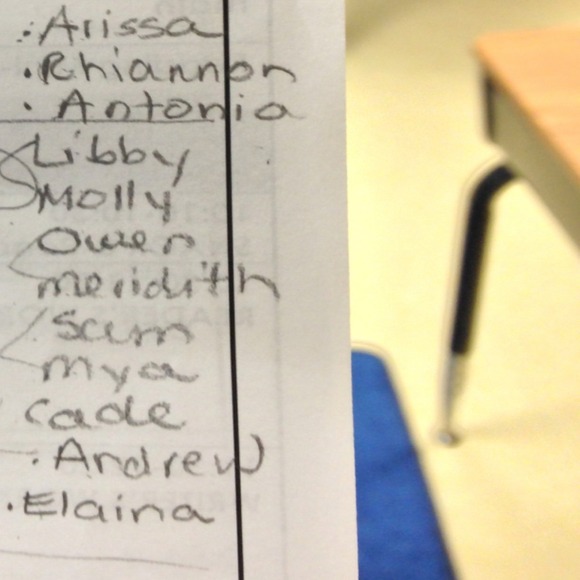 · Arissa
· Rhiannon
· Antonia
Libby
Molly
Owen
meridith
Sam
mya
Cade
· Andrew
· Elaina